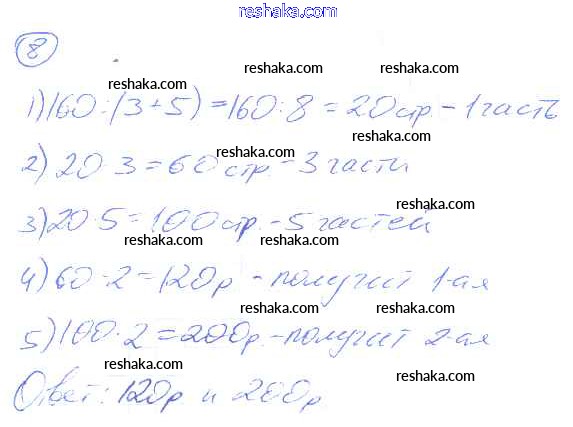 reshaka.com
8
reshaka.com
reshaka.com
1) 160 : (3 + 5) = 160 : 8 = 20 стр. - 1 часть
reshaka.com
reshaka.com
2) 20 · 3 = 60 стр. - 3 части
reshaka.com
3) 20 · 5 = 100 стр. - 5 частей
reshaka.com
reshaka.com
4) 60 · 2 = 120 р - получит 1-ая
reshaka.com
reshaka.com
5) 100 · 2 = 200 р. - получит 2-ая
reshaka.com
reshaka.com
Ответ: 120 р и 200 р